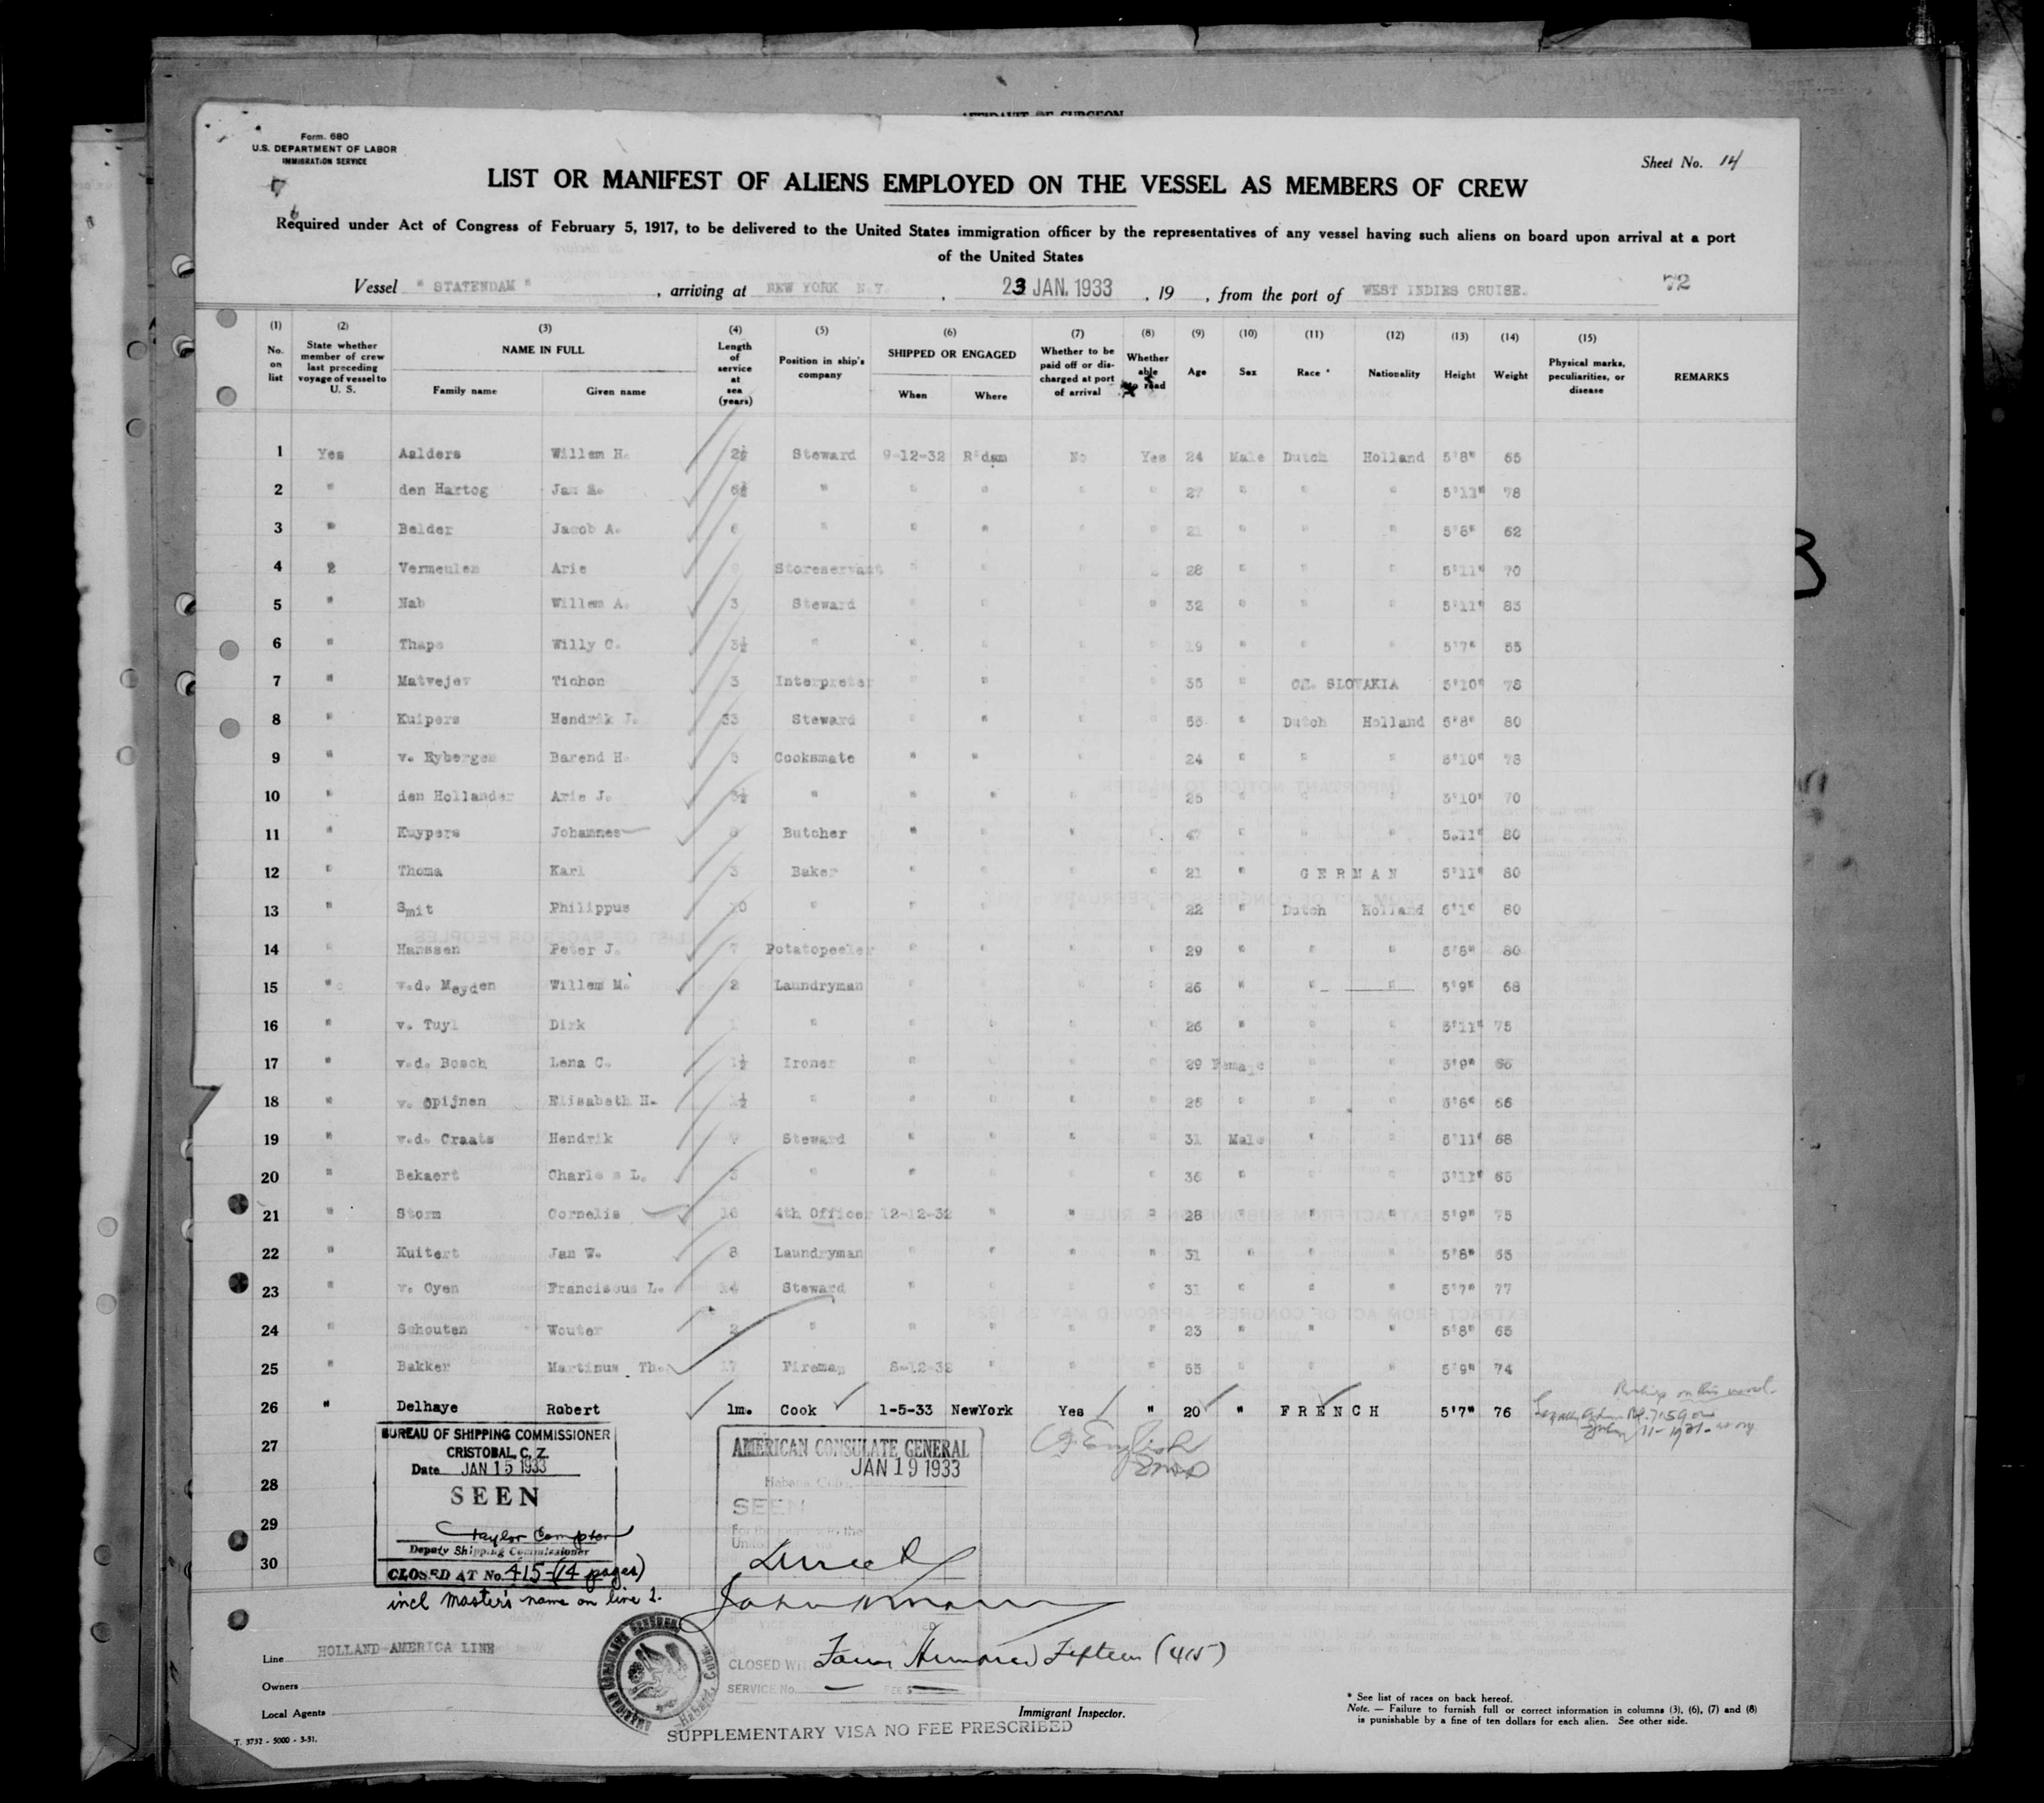 AFFIDAVIT OF SURGEON
Form. 680
U.S. DEPARTMENT OF LABOR
IMMIGRATION SERVICE
Sheet No. 14
LIST OR MANIFEST OF ALIENS EMPLOYED ON THE VESSEL AS MEMBERS OF CREW
Required under Act of Congress of February 5, 1917, to be delivered to the United States immigration officer by the representatives of any vessel having such aliens on board upon arrival at a port
of the United States
Vessel " STATENDAM " , arriving at NEW YORK N.Y. , 23 JAN. 1933 , 19 , from the port of WEST INDIES CRUISE. 72
(1) No. on list (2) State whether member of crew last preceding voyage of vessel to U. S. (3) NAME IN FULL Family name Given name (4) Length of service at sea (years) (5) Position in ship's company (6) SHIPPED OR ENGAGED When Where (7) Whether to be paid off or discharged at port of arrival (8) Whether able to read (9) Age (10) Sex (11) Race * (12) Nationality (13) Height (14) Weight (15) Physical marks, peculiarities, or disease REMARKS
1 Yes Aalders Willem H. 2½ Steward 9-12-32 R'dam No Yes 24 Male Dutch Holland 5'8" 65
2 " den Hartog Jan " " " " " 27 " " " 5'11" 78
3 " Belder Jacob A. 6 " " " " " 21 " " " 5'8" 62
4 Vermeulen Arie Storeservant " " " " 28 " " " 5'11" 70
5 " Nab Willem A. 3 Steward " " " " 32 " " " 5'11" 83
6 " Thaps Willy C. 3½ " " " " " 19 " " " 5'7" 55
7 " Matvejev Tichon 3 Interpreter " " " " 35 " CZ. SLOVAKIA 5'10" 78
8 " Kuipers Hendrik J. 33 Steward " " " " " Dutch Holland 5'8" 80
9 " v. Eybergen Barend H. 5 Cooksmate " " " " 24 " " " 5'10" 78
10 " den Hollander Arie J. 3½ " " " " " 25 " " " 5'10" 70
11 " Kuypers Johannes Butcher " " " " 47 " " " 5.11" 80
12 " Thoma Karl 3 Baker " " " " 21 " GERMAN 5'11" 80
13 " Smit Philippus 10 " " " " " 22 " Dutch Holland 6'1" 80
14 " Hanssen Peter J. 7 Potatopeeler " " " " 29 " " " 5'8" 80
15 " v.d. Meyden Willem M. 2 Laundryman " " " " 26 " " " 5'9" 68
16 " v. Tuyl Dirk 1 " " " " " 26 " " " 5'11" 75
17 " v.d. Bosch Lena C. 1½ Ironer " " " " 29 Female " " 5'9" 65
18 " v. Opijnen Elisabeth H. 1½ " " " " " 26 " " " 5'6" 66
19 " v.d. Craats Hendrik Steward " " " " 31 Male " " 5'11" 68
20 " Bekaert Charles L. 3 " " " " " 36 " " " 5'11" 65
21 " Storm Cornelis 16 4th Officer 12-12-32 " " " 28 " " " 5'9" 75
22 " Kuitert Jan W. 8 Laundryman " " " " 31 " " " 5'8" 65
23 " v. Oyen Franciscus L. 14 Steward " " " " 31 " " " 5'7" 77
24 " Schouten Wouter 2 " " " " " 23 " " " 5'8" 65
25 " Bakker Martinus Th. 17 Fireman " " " 55 " " " 5'9" 74
26 " Delhaye Robert 1m. Cook 1-5-33 NewYork Yes " 20 " FRENCH 5'7" 76
27
28
29
30
BUREAU OF SHIPPING COMMISSIONER
CRISTOBAL, C. Z.
Date JAN 15 1933
SEEN
Taylor Compton
Deputy Shipping Commissioner
CLOSED AT No. 415-(14 pages)
incl Master's name on line 1.
AMERICAN CONSULATE GENERAL
JAN 19 1933
Habana Cuba
SEEN
For the journey to the
United
English
CLOSED WITH Four Hundred Fifteen (415)
SERVICE No. — FEE $ —
Line HOLLAND-AMERICA LINE
Owners
Local Agents
Immigrant Inspector.
SUPPLEMENTARY VISA NO FEE PRESCRIBED
* See list of races on back hereof.
Note. — Failure to furnish full or correct information in columns (3), (6), (7) and (8)
is punishable by a fine of ten dollars for each alien. See other side.
T. 3732 - 5000 - 3-31.